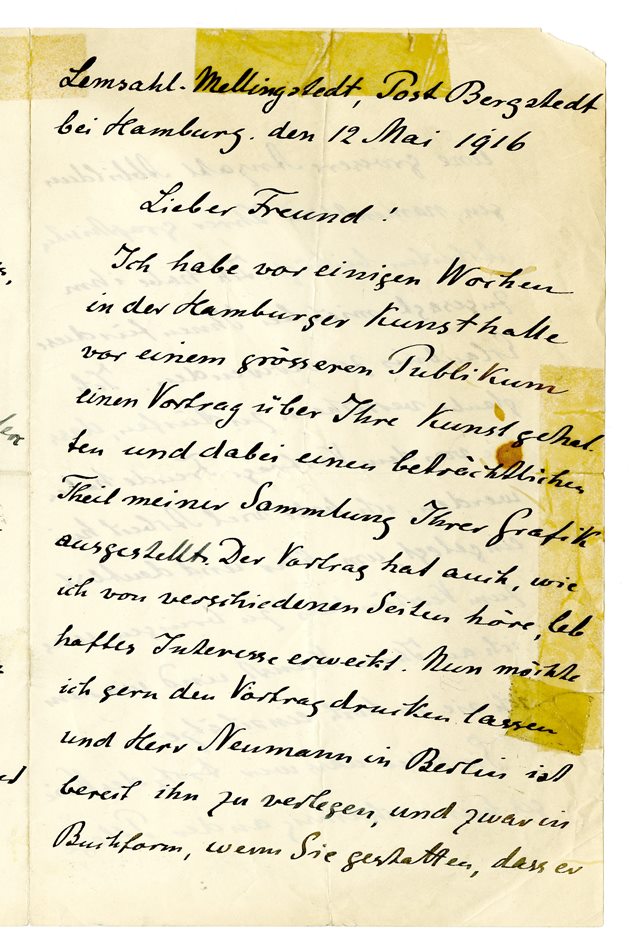 Lemsahl-Mellingstedt, Post Bergstedt
bei Hamburg. den 12 Mai 1916
Lieber Freund!
Ich habe vor einigen Wochen
in der Hamburger Kunsthalle
vor einem grösseren Publikum
einen Vortrag über Ihre Kunst gehal-
ten und dabei einen beträchtlichen
Theil meiner Sammlung Ihrer Grafik
ausgestellt. Der Vortrag hat auch, wie
ich von verschiedenen Seiten höre, leb
haftes Interesse erweckt. Nun möchte
ich gern den Vortrag drucken lassen
und Herr Neumann in Berlin ist
bereit ihn zu verlegen, und zwar in
Buchform, wenn Sie gestatten, dass er